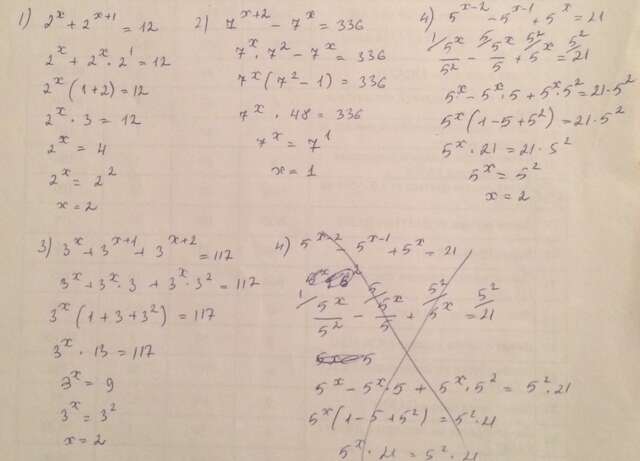 1) 2^x + 2^(x+1) = 12
2^x + 2^x · 2^1 = 12
2^x (1+2) = 12
2^x · 3 = 12
2^x = 4
2^x = 2^2
x = 2
2) 7^(x+2) - 7^x = 336
7^x · 7^2 - 7^x = 336
7^x (7^2 - 1) = 336
7^x · 48 = 336
7^x = 7^1
x = 1
4) 5^(x-2) - 5^(x-1) + 5^x = 21
1/ 5^x/5^2 - 5/ 5^x/5 + 5^2/ 5^x = 5^2/ 21
5^x - 5^x · 5 + 5^x · 5^2 = 21 · 5^2
5^x (1 - 5 + 5^2) = 21 · 5^2
5^x · 21 = 21 · 5^2
5^x = 5^2
x = 2
3) 3^x + 3^(x+1) + 3^(x+2) = 117
3^x + 3^x · 3 + 3^x · 3^2 = 117
3^x (1 + 3 + 3^2) = 117
3^x · 13 = 117
3^x = 9
3^x = 3^2
x = 2
4) 5^(x-2) - 5^(x-1) + 5^x = 21
1/ 5^x/5^2 - 5/ 5^x/5 + 5^2/ 5^x = 5^2/ 21
5^x - 5^x · 5 + 5^x · 5^2 = 5^2 · 21
5^x (1 - 5 + 5^2) = 5^2 · 21
5^x · 21 = 5^2 · 21